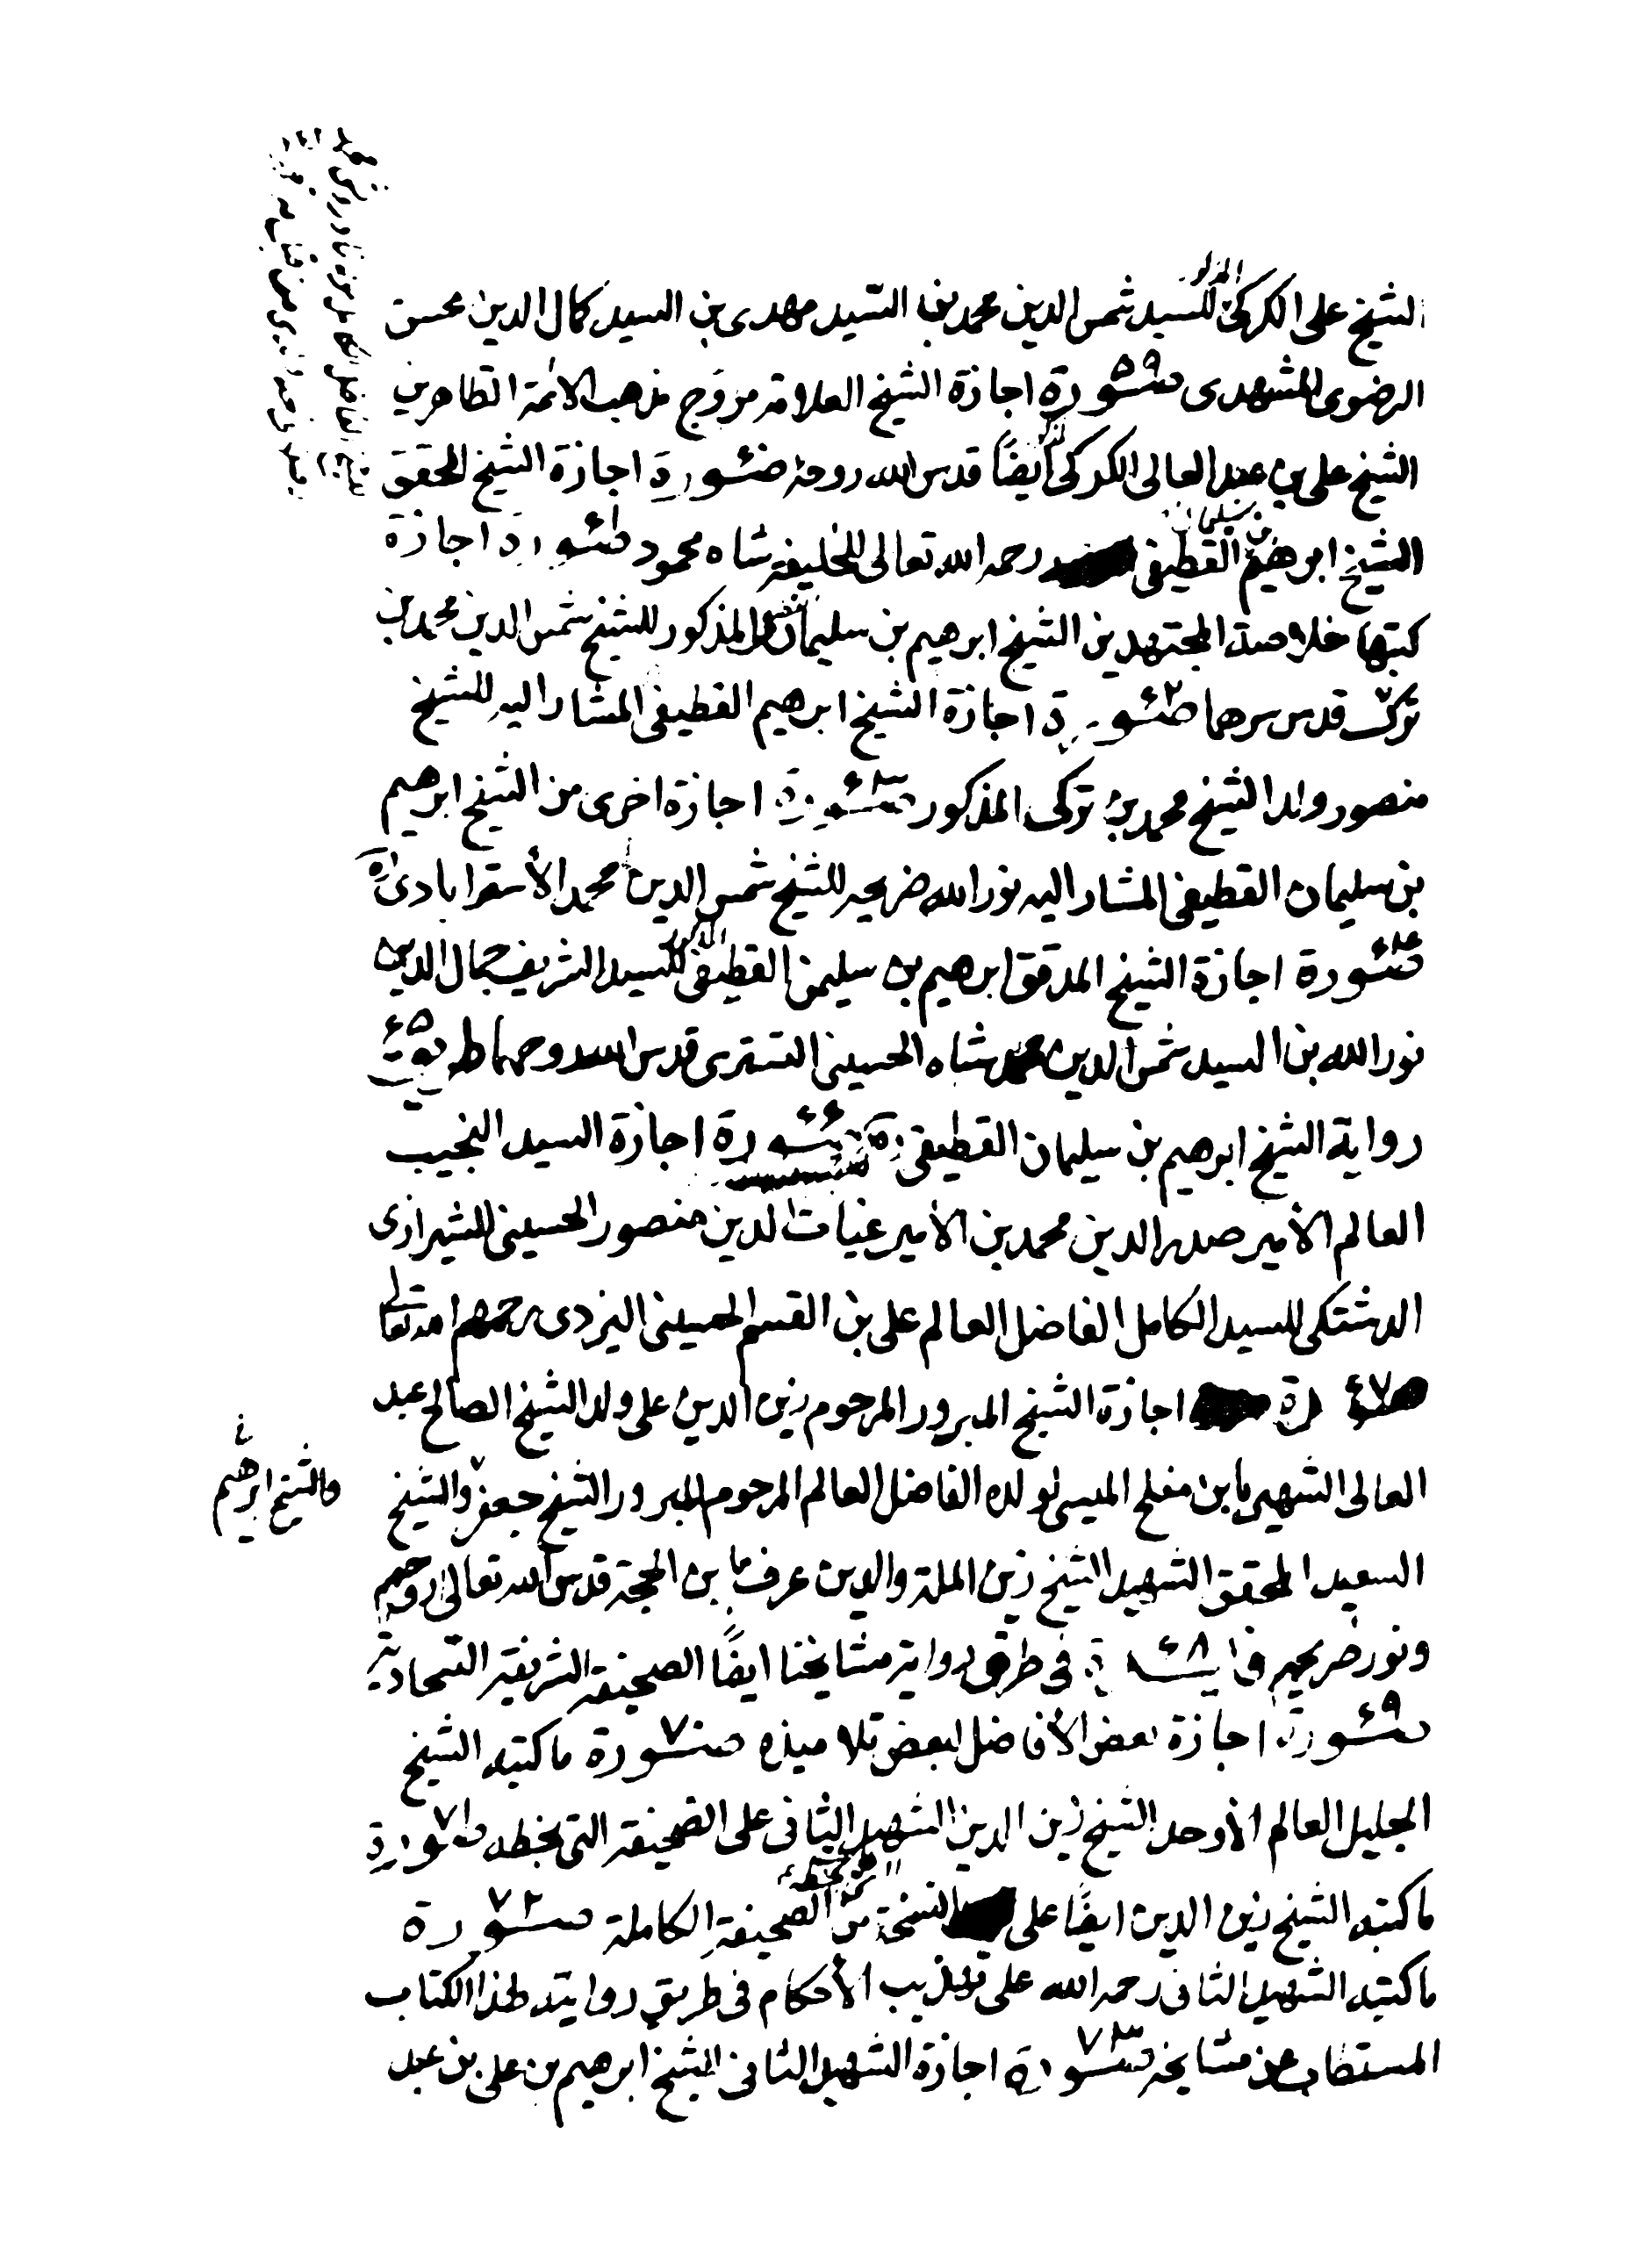 الشيخ على الكركى المذكور للسيد شمس الدين محمد بن السيد مهدى بن السيد كمال الدين محسن
الرضوى المشهدى صورة ٥٩ اجازة الشيخ العلامة مروج مذهب الائمة الطاهرين
الشيخ على بن عبد العالى الكركى ايضًا قدس الله روحه صورة اجازة الشيخ المحقق
الشيخ ابرهيم بن سليمان القطيفى رحمه الله تعالى للخليفة شاه محمود صورة اجازة
كتبها خلاصة المجتهدين الشيخ ابرهيم بن سليمان المذكور للشيخ شمس الدين محمد بن
تركى قدس سرهما صورة ٦٢ اجازة الشيخ ابرهيم القطيفى المشار اليه للشيخ
منصور ولد الشيخ محمد بن تركى المذكور صورة ٦٣ اجازة اخرى من الشيخ ابرهيم
بن سليمان القطيفى المشار اليه نور الله ضريحه للشيخ شمس الدين محمد الأسترابادى
صورة ٦٤ اجازة الشيخ المدقق ابرهيم بن سليمن القطيفى المذكور للسيد الشريف جمال الدين
نور الله بن السيد شمس الدين محمد شاه الحسينى التسترى قدس الله روحهما ٦٥ طريق
رواية الشيخ ابرهيم بن سليمان القطيفى صورة ٦٦ اجازة السيد النجيب
العالم الأمير صدر الدين محمد بن الأمير غياث الدين منصور الحسينى الشيرازى
الدشتكى للسيد الكامل الفاضل العالم على بن القسم الحسينى اليزدى رحمهم الله تعالى
صورة ٦٧ اجازة الشيخ المبرور المرحوم زين الدين على ولد الشيخ الصالح عبد
العالى الشهير بابن مفلح الميسى لولده الفاضل العالم المرحوم المبرور الشيخ جعفر والشيخ
والشيخ ابرهيم
السعيد المحقق الشهيد الشيخ زين الملة والدين عرف بابن الحجة قدس الله تعالى ارواحهم
ونور ضرايحهم ٦٨ فى طرق رواية مشايخنا ايضًا الصحيفة الشريفة السجادية
صورة ٦٩ اجازة بعض الأفاضل لبعض تلاميذه صورة ٧٠ ما كتبه الشيخ
الجليل العالم الأوحد الشيخ زين الدين الشهيد الثانى على الصحيفة التى بخطه صورة ٧١
ما كتبه الشيخ زين الدين ايضًا على نسخة من الصحيفة الكاملة صورة ٧٢
ما كتبه الشهيد الثانى رحمه الله على تهذيب الأحكام فى طريق روايته لهذا الكتاب
المستطاب عن مشايخه صورة ٧٣ اجازة الشهيد الثانى للشيخ ابرهيم بن على بن عبد